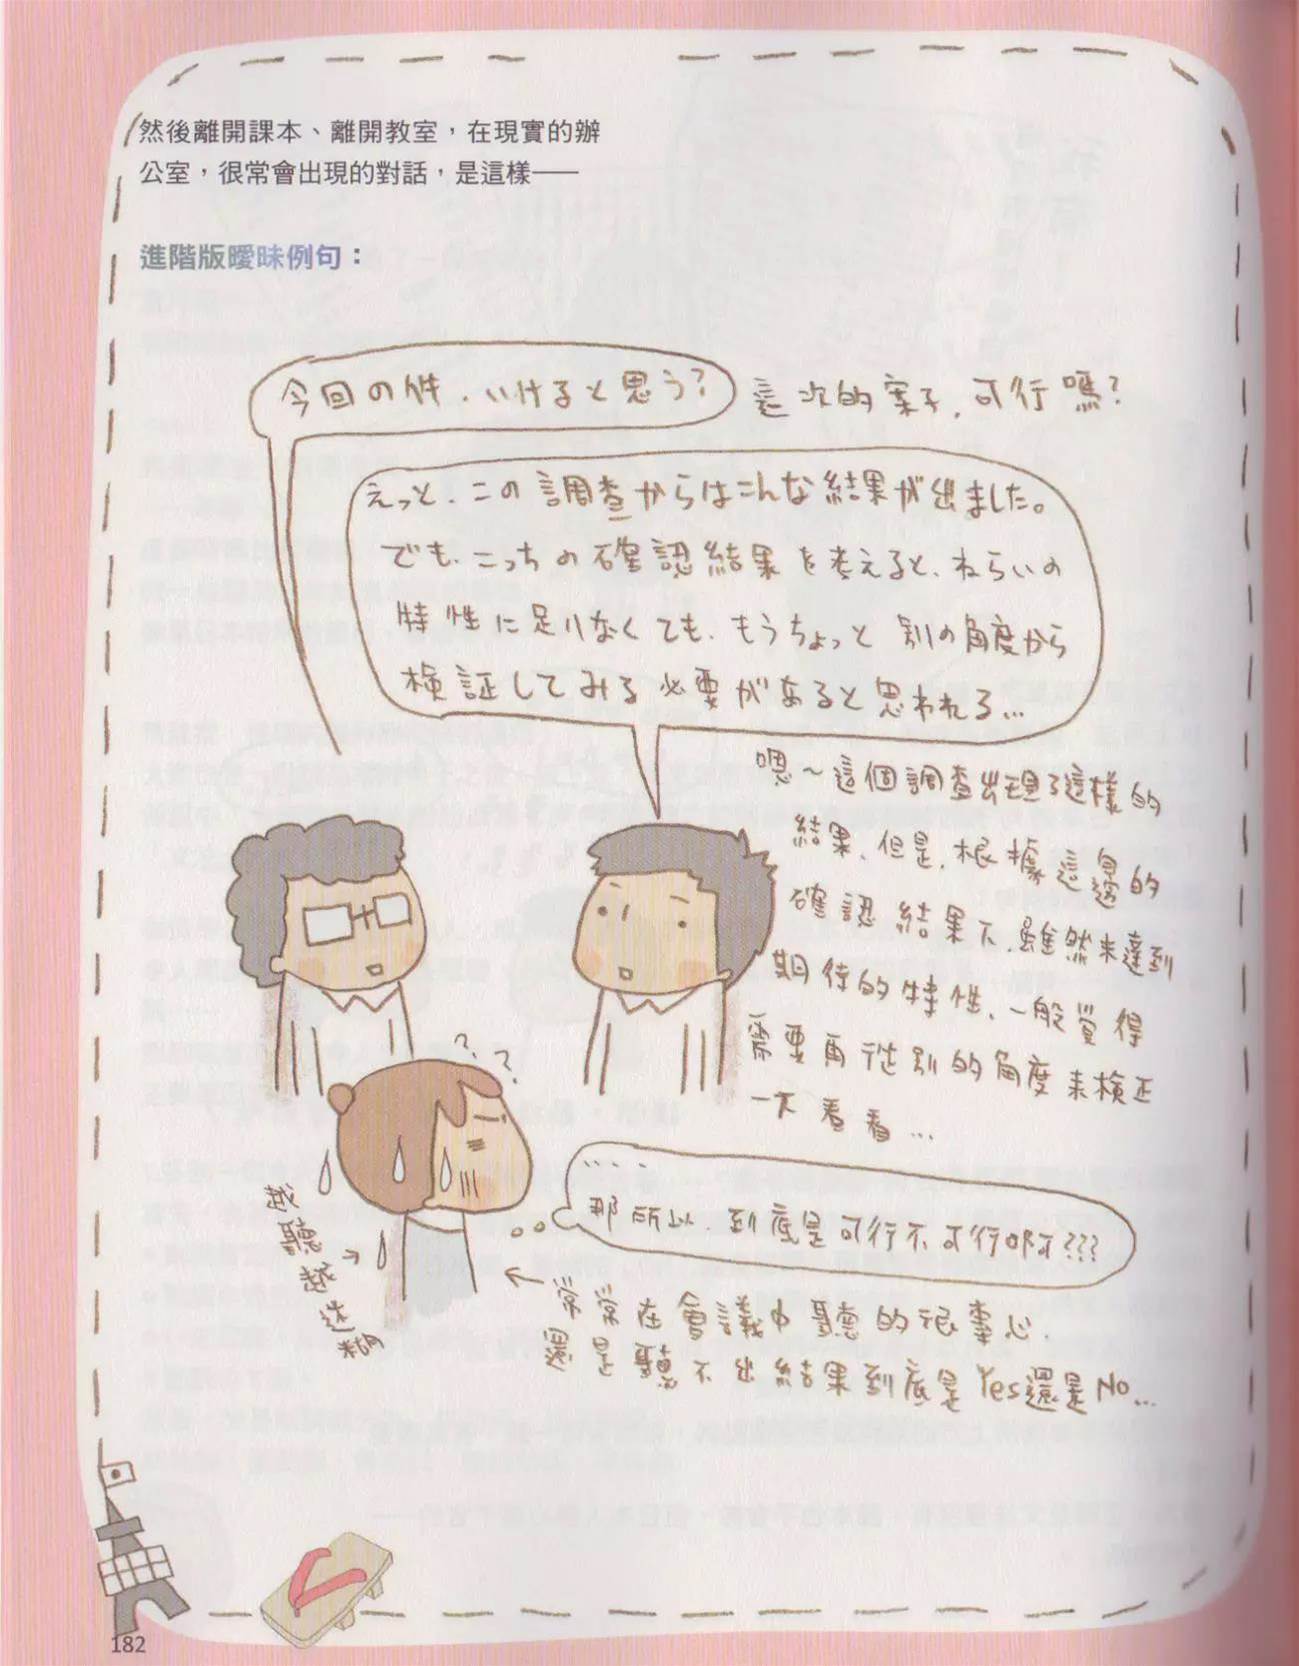 然後離開課本、離開教室，在現實的辦
公室，很常會出現的對話，是這樣──
進階版曖昧例句：
今回の件、いけると思う？
這次的案子，可行嗎？
えっと、この調査からはこんな結果が出ました。
でも、こっちの確認結果を考えると、ねらいの
特性に足りなくても、もうちょっと別の角度から
検証してみる必要があると思われる…
嗯～這個調查出現了這樣的
結果、但是，根據這邊的
確認結果下，雖然未達到
期待的特性、一般覺得
需要再從別的角度來檢正
一下看看…
？？
....
那所以，到底是可行不可行啊???
我聽越迷糊
常常在會議中聽的很專心、
還是聽不出結果到底是Yes還是No...
182